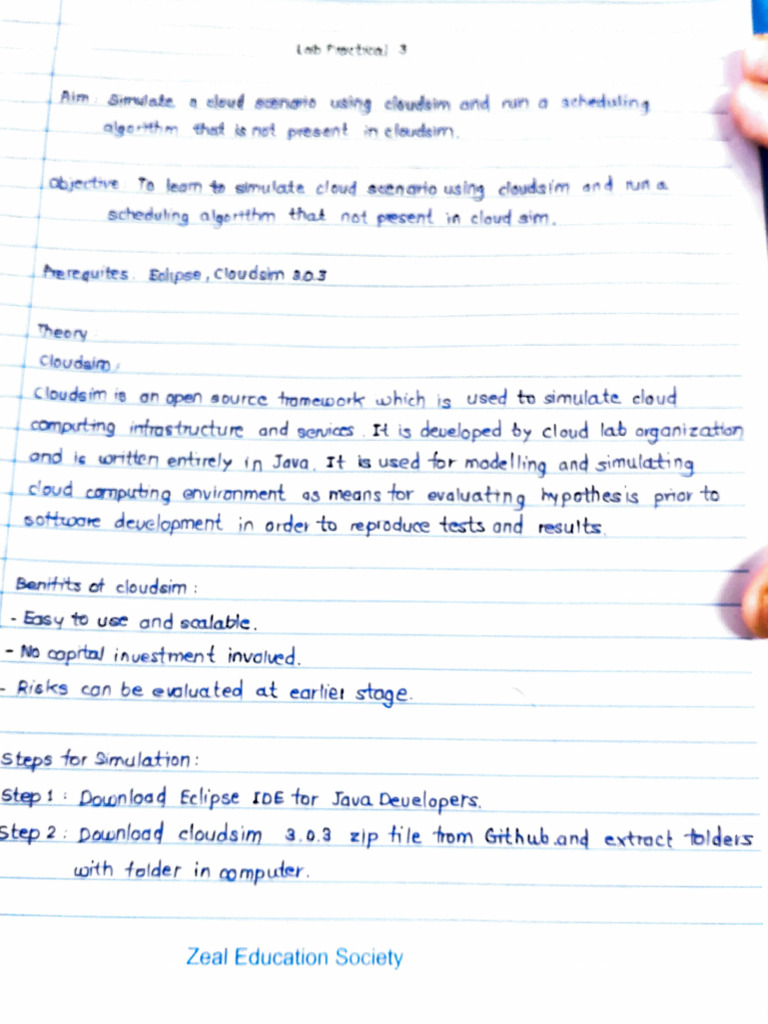 Lab Practical 3
Aim: Simulate a cloud scenario using cloudsim and run a scheduling
algorithm that is not present in cloudsim.
Objective: To learn to simulate cloud scenario using cloudsim and run a
scheduling algorithm that not present in cloud sim.
Prerequites: Eclipse, Cloudsim 3.0.3
Theory:
Cloudsim:
Cloudsim is an open source framework which is used to simulate cloud
computing infrastructure and services. It is developed by cloud lab organization
and is written entirely in Java. It is used for modelling and simulating
cloud computing environment as means for evaluating hypothesis prior to
software development in order to reproduce tests and results.
Benifits of cloudsim:
- Easy to use and scalable.
- No capital investment involved.
- Risks can be evaluated at earlier stage.
Steps for Simulation:
Step 1: Download Eclipse IDE for Java Developers.
Step 2: Download cloudsim 3.0.3 zip file from Github.and extract folders
with folder in computer.
Zeal Education Society